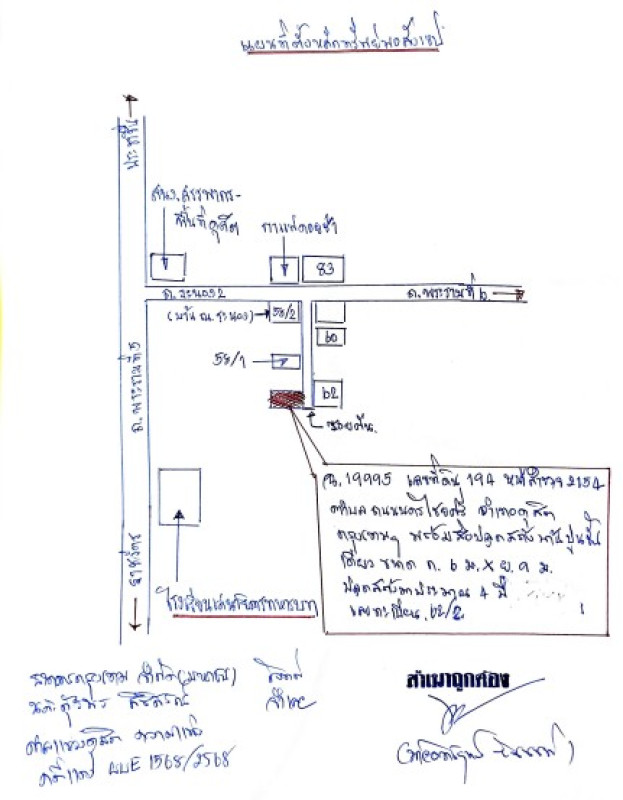 แผนที่ตั้งหลักทรัพย์พอสังเขป
ประชาชื่น
สนง.สรรพากร-
พื้นที่ดุสิต
กาแฟดอยช้า
83
ถ.ระนอง2
ถ.พระรามที่ 6.
(บ้าน ณ.ระนอง)
58/2
60
58/1
62
ซอยตัน.
ถ.พระรามที่5
ราชวัตร
โรงเรียน
ฉ.19995 เลขที่ดิน 194 หน้าสำรวจ 2154
ตำบล ถนนนครไชยศรี อำเภอดุสิต
กรุงเทพฯ พร้อมสิ่งปลูกสร้าง บ้านปูนชั้น
เดียว ขนาด ก. 6 ม. X ย. 9 ม.
ปลูกสร้างมาประมาณ 4 ปี
เลขทะเบียน 62/2.
ธนาคารกรุงเทพ จำกัด(มหาชน) โจทก์
จำเลย
ศาลแขวงดุสิต ความแพ่ง
คดีแดง ผบE 1568/2568
สำเนาถูกต้อง